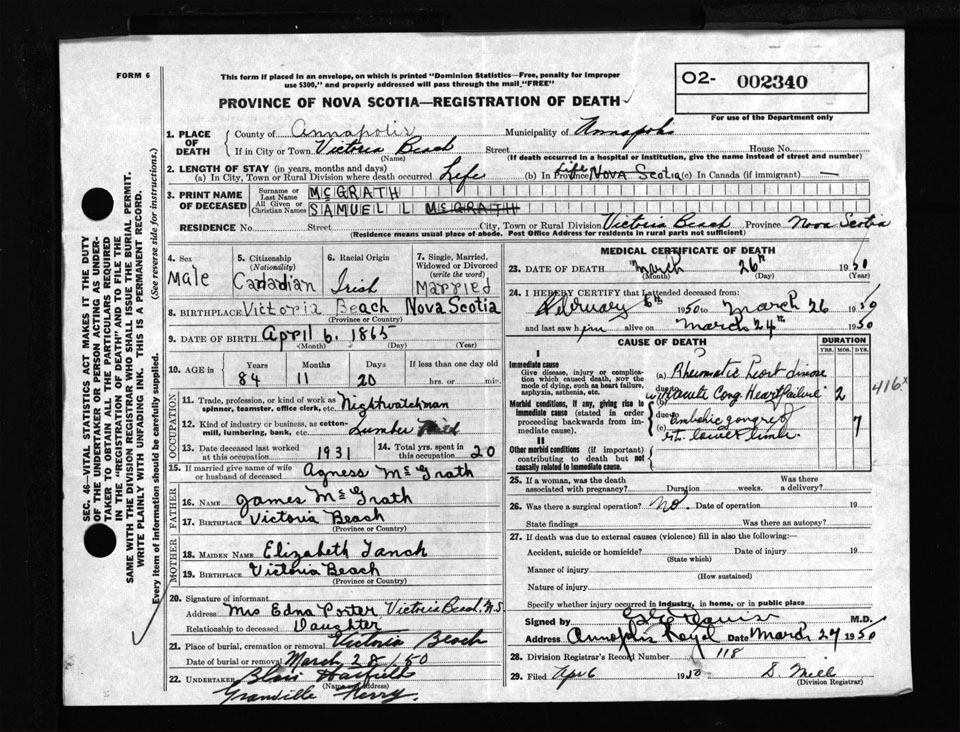 FORM 6
This form if placed in an envelope, on which is printed "Dominion Statistics—Free, penalty for improper
use $300," and properly addressed will pass through the mail "FREE"
PROVINCE OF NOVA SCOTIA—REGISTRATION OF DEATH
O2- 002340
For use of the Department only
SEC. 46—VITAL STATISTICS ACT MAKES IT THE DUTY
OF THE UNDERTAKER OR PERSON ACTING AS UNDER-
TAKER TO OBTAIN ALL THE PARTICULARS REQUIRED
IN THE "REGISTRATION OF DEATH" AND TO FILE THE
SAME WITH THE DIVISION REGISTRAR WHO SHALL ISSUE THE BURIAL PERMIT.
WRITE PLAINLY WITH UNFADING INK. THIS IS A PERMANENT RECORD.
Every item of Information should be carefully supplied. (See reverse side for instructions.)
1. PLACE OF DEATH
County of Annapolis Municipality of Annapolis
If in City or Town Victoria Beach Street House No.
(Name) (If death occurred in a hospital or institution, give the name instead of street and number)
2. LENGTH OF STAY (in years, months and days)
(a) In City, Town or Rural Division where death occurred Life (b) In Province Life Nova Scotia (c) In Canada (if immigrant) —
3. PRINT NAME OF DECEASED
Surname or Last Name McGRATH
All Given or Christian Names SAMUEL L McGRATH
RESIDENCE No. Street City, Town or Rural Division Victoria Beach Province Nova Scotia
(Residence means usual place of abode. Post Office Address for residents in rural parts not sufficient)
4. Sex
Male
5. Citizenship (Nationality)
Canadian
6. Racial Origin
Irish
7. Single, Married, Widowed or Divorced (write the word)
Married
8. BIRTHPLACE Victoria Beach Nova Scotia
(Province or Country)
9. DATE OF BIRTH April 6, 1865
(Month) (Day) (Year)
10. AGE in Years Months Days If less than one day old
84 11 20 hrs. or min.
OCCUPATION
11. Trade, profession, or kind of work as
spinner, teamster, office clerk, etc. Nightwatchman
12. Kind of industry or business, as cotton-
mill, lumbering, bank, etc. Lumber
13. Date deceased last worked at this occupation 1931
14. Total yrs. spent in this occupation 20
15. If married give name of wife
or husband of deceased Agness McGrath
FATHER
16. NAME James McGrath
17. BIRTHPLACE Victoria Beach
(Province or Country)
MOTHER
18. MAIDEN NAME Elizabeth
19. BIRTHPLACE Victoria Beach
(Province or Country)
20. Signature of informant
Address Mrs Edna Porter Victoria Beach, N.S
Relationship to deceased Daughter
21. Place of burial, cremation or removal Victoria Beach
Date of burial or removal March 28/50
22. UNDERTAKER Blair
(Name and address)
Granville Ferry.
MEDICAL CERTIFICATE OF DEATH
23. DATE OF DEATH March 26th 1950
(Month) (Day) (Year)
24. I HEREBY CERTIFY that I attended deceased from:
February 6th 1950 to March 26 1950
and last saw him alive on March 24th 1950
CAUSE OF DEATH
DURATION
YRS. MOS. DYS.
I
Immediate cause
Give disease, injury or complica-
tion which caused death, not the
mode of dying, such as heart failure,
asphyxia, asthenia, etc.
(a) Rheumatic Heart disease
due to
Acute Cong. Heart failure 2
416x
Morbid conditions, if any, giving rise to
immediate cause (stated in order
proceeding backwards from im-
mediate cause).
due to
(c) embolic gangrene of 7
rt. lower limb.
II
Other morbid conditions (if important)
contributing to death but not
causally related to immediate cause.
25. If a woman, was the death
associated with pregnancy? Duration weeks. Was there a delivery?
26. Was there a surgical operation? No Date of operation 19
State findings Was there an autopsy?
27. If death was due to external causes (violence) fill in also the following:—
Accident, suicide or homicide? Date of injury 19
(State which)
Manner of injury
(How sustained)
Nature of injury
Specify whether injury occurred in industry, in home, or in public place
Signed by M.D.
Address Annapolis Royal Date March 27 1950
28. Division Registrar's Record Number 118
29. Filed Apr 6 1950 S.
(Division Registrar)